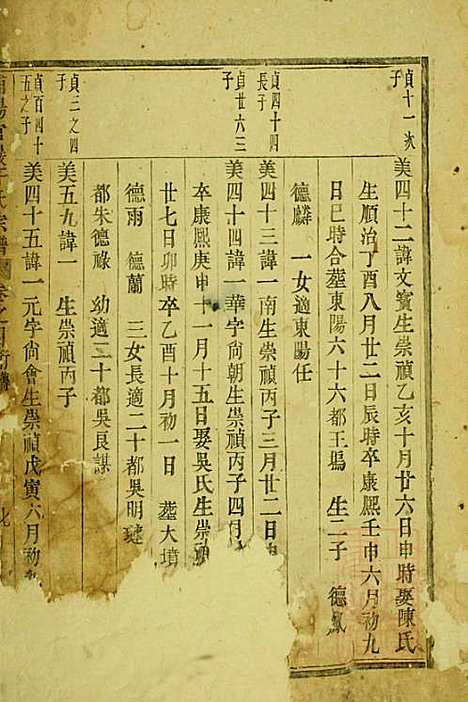 貞十一次
子
美四十二諱文寳生崇禎乙亥十月廿六日申時娶陳氏
生順治丁酉八月廿二日辰時卒康熙壬申六月初九
日巳時合塟東陽六十六都王塢 生二子 德鳳
德麟 一女適東陽任
貞四十四
長子
美四十三諱一南生崇禎丙子三月廿二日申
貞廿六三
子
美四十四諱一華字尙朝生崇禎丙子四月
卒康熙庚申十一月十五日娶吳氏生崇禎
廿七日卯時卒乙酉十月初一日 塟大墳
德雨 德蘭 三女長適二十都吳明璉
都朱德祿 幼適二十都吳良謀
貞三之四
子
美五九諱一 生崇禎丙子
貞百四十
五之子
美四十五諱一元字尙會生崇禎戊寅六月初九
宗譜